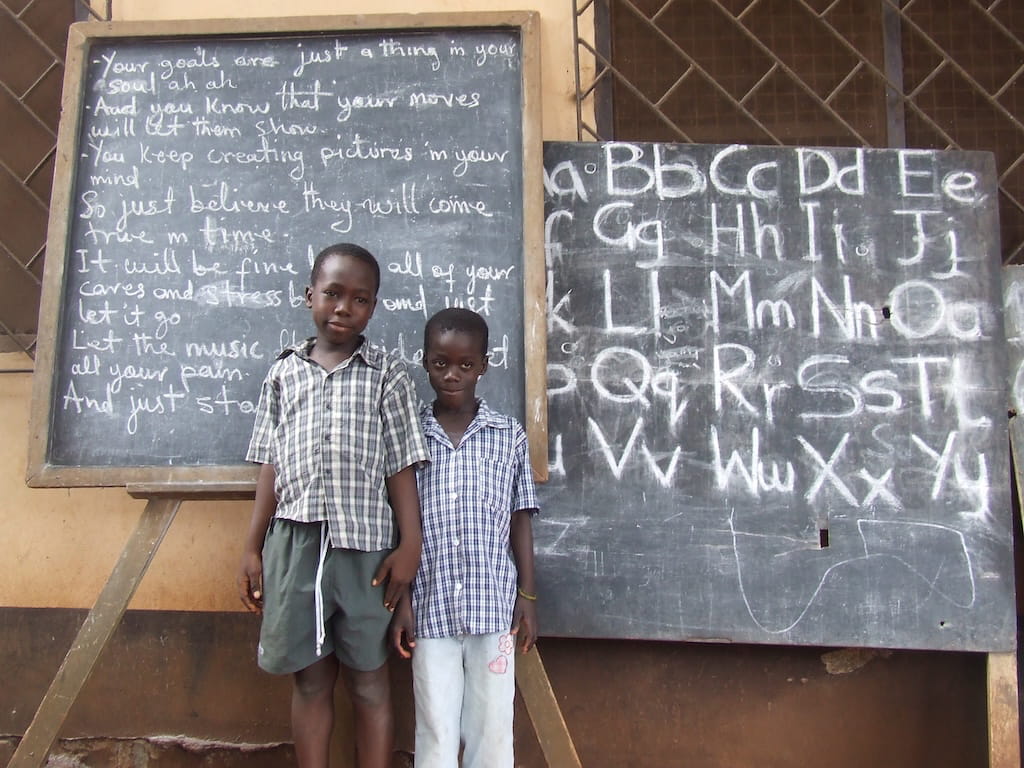 -Your goals are just a thing in your
soul ah ah
-And you know that your moves
will let them show.
-You keep creating pictures in your
mind
So just believe they will come
true in time.
It will be fine all of your
cares and stress and just
let it go
Let the music
all your pain.
And just
Bb Cc Dd Ee
Gg Hh Ii Jj
Ll Mm Nn Oo
Qq Rr Ss Tt
Vv Ww Xx Yy